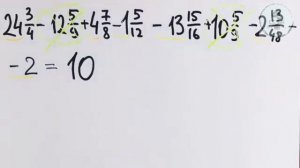 24 3/4 - 12 5/9 + 4 7/8 - 1 5/12 - 13 15/16 + 10 5/9 - 2 13/48 -
- 2 = 10